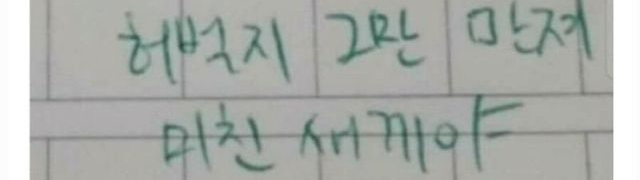 허벅지 그만 만져
미친 새끼야